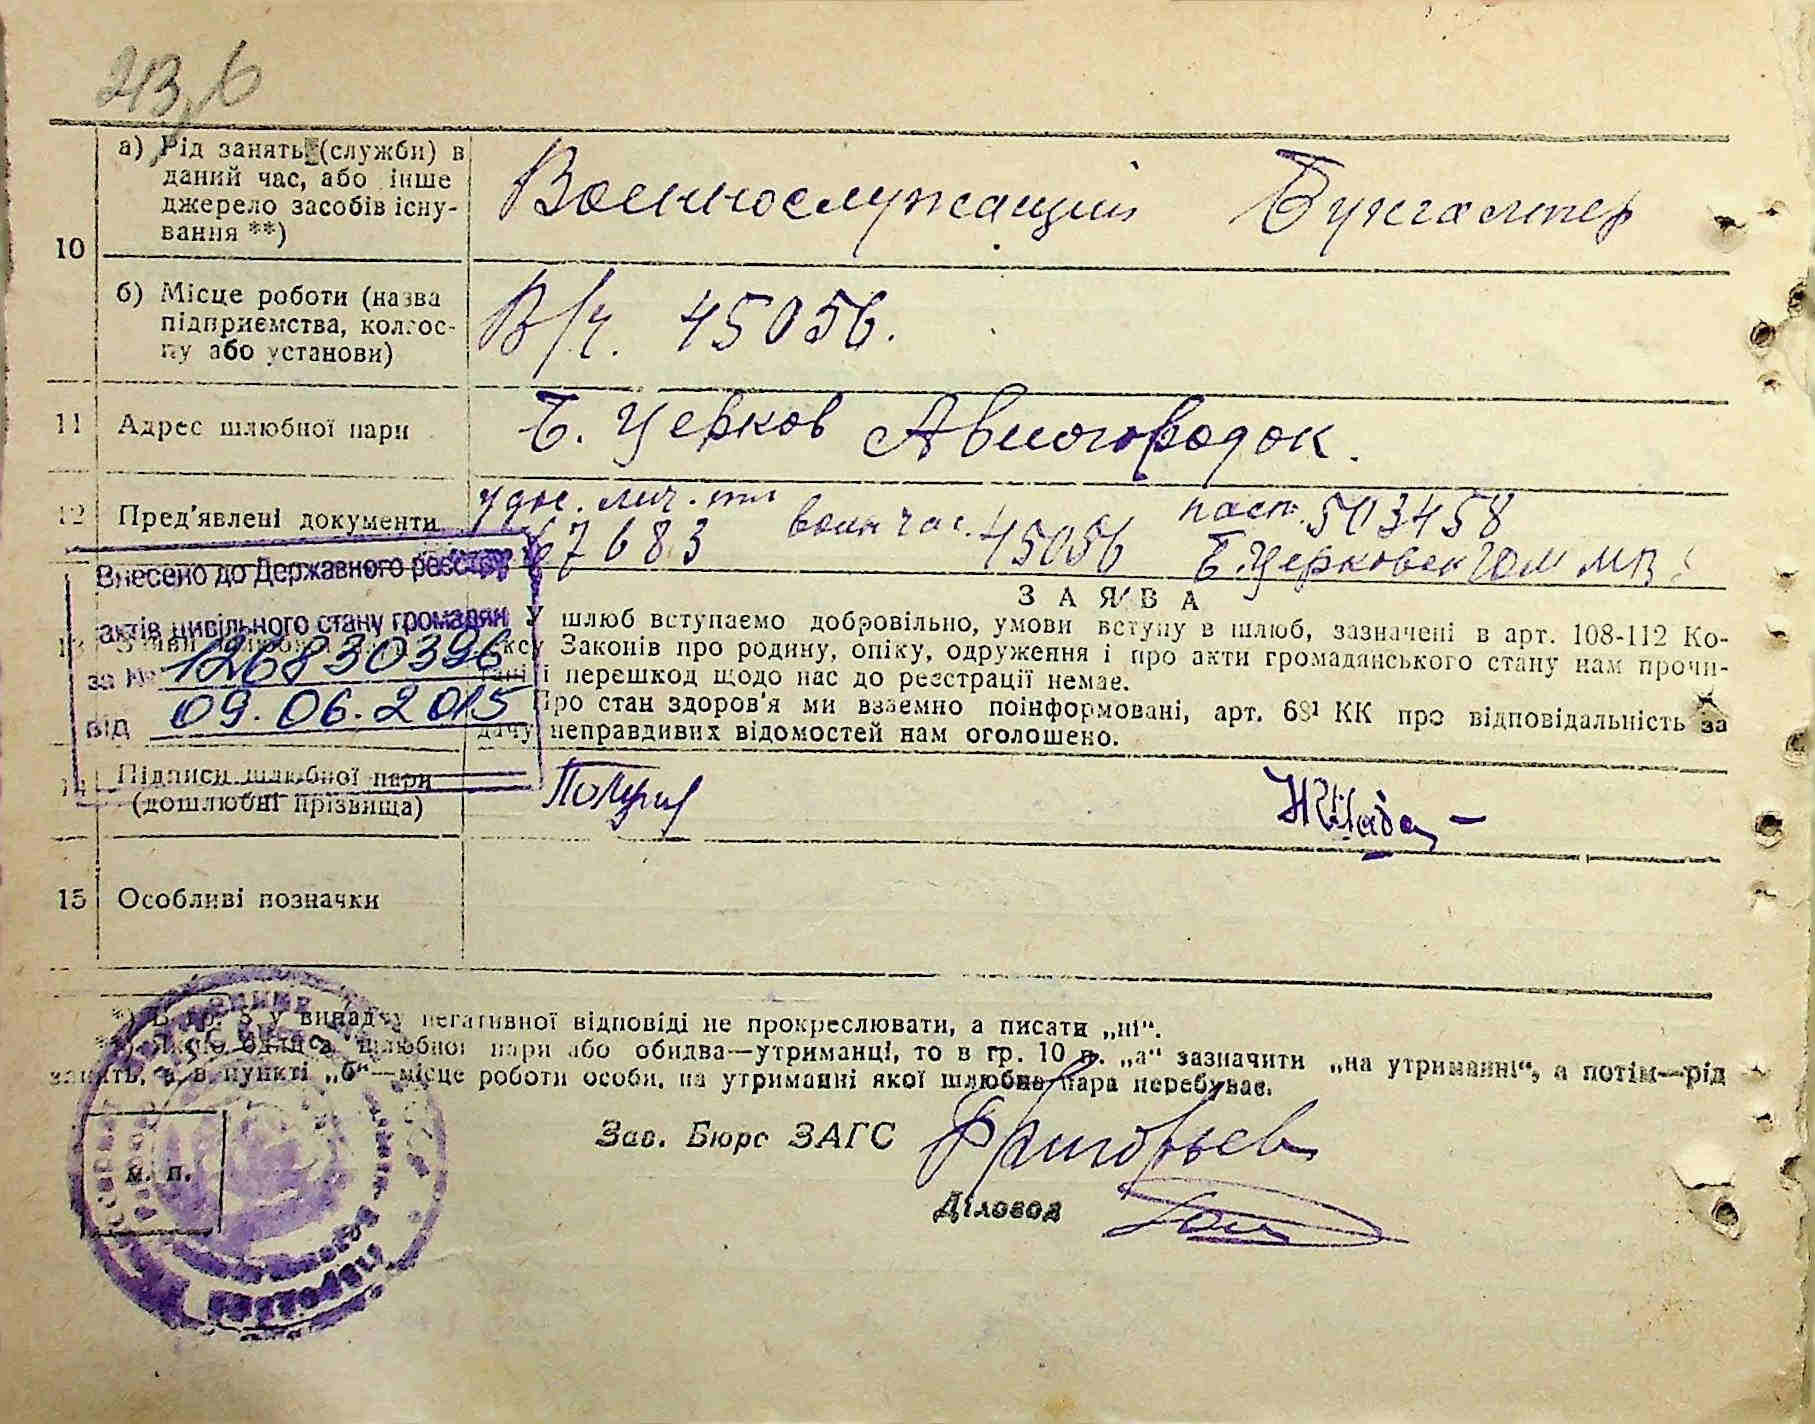 213,6
а) Рід занять (служби) в даний час, або інше джерело засобів існування **)
Военнослужащий Бухгалтер
10
б) Місце роботи (назва підприємства, колгоспу або установи)
В/ч. 45056.
11 Адрес шлюбної пари
Б. Церков Авиогородок.
12 Пред'явлені документи
удос. лич. 67683 воин час. 45056 пасп. 503458
Б. Церковск ГОМ
Внесено до Державного реєстру
актів цивільного стану громадян
за № 126830396
від 09.06.2015
13
З А Я В А
У шлюб вступаємо добровільно, умови вступу в шлюб, зазначені в арт. 108-112 Ко-
ксу Законів про родину, опіку, одруження і про акти громадянського стану нам прочи-
тані і перешкод щодо нас до реєстрації немає.
Про стан здоров'я ми взаємно поінформовані, арт. 68¹ КК про відповідальність за
дачу неправдивих відомостей нам оголошено.
14 Підписи шлюбної пари
(дошлюбні прізвища)
15 Особливі позначки
*) В гр. 5 у випадку негативної відповіді не прокреслювати, а писати „ні“.
**) Якщо один з шлюбної пари або обидва—утриманці, то в гр. 10 п. „а“ зазначити „на утриманні“, а потім—рід
занять, а в пункті „б“—місце роботи особи, на утриманні якої шлюбна пара перебуває.
Зав. Бюро ЗАГС Григорьев
Діловод
м. п.